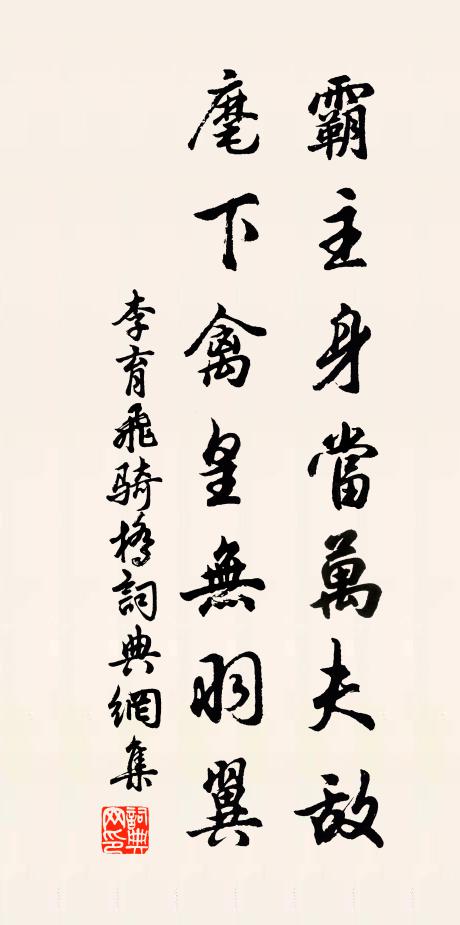 霸主身當萬夫敵
麾下禽皇無羽翼
李育飛騎橋詞典網集
詞典网印